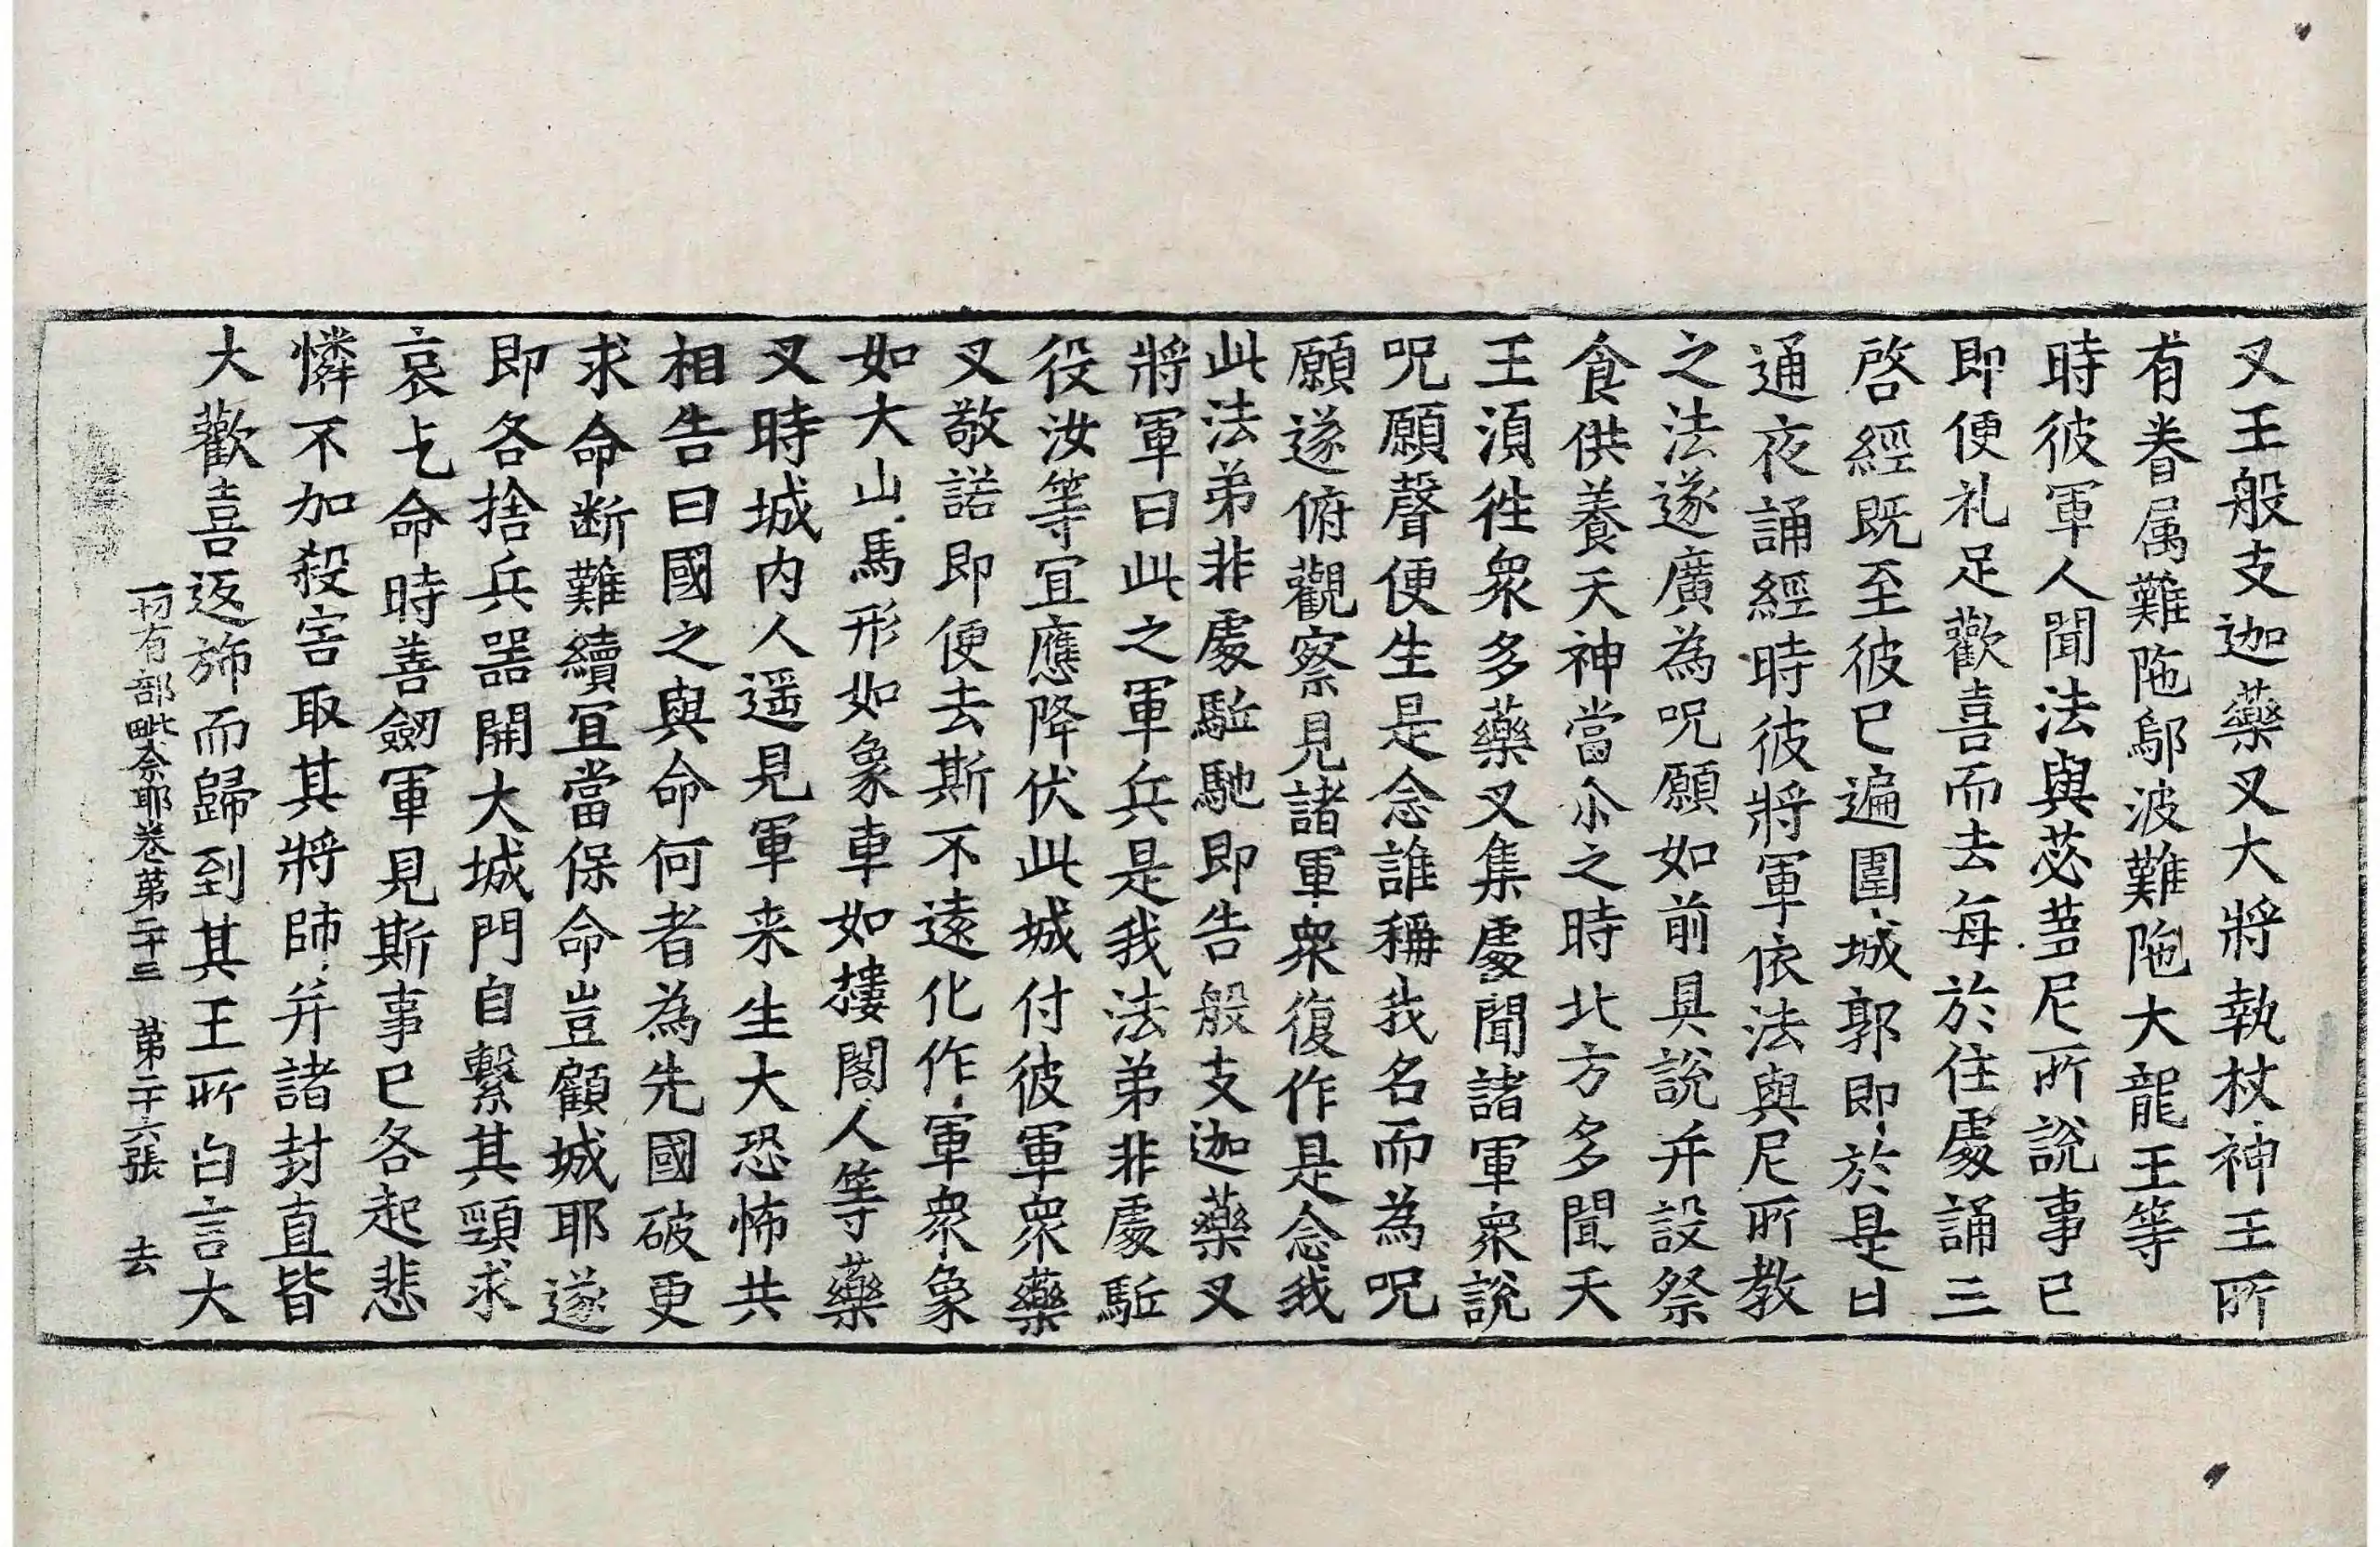 叉王般支迦藥叉大將執杖神王所
有眷属難陁鄔波難陁大龍王等
時彼軍人聞法與苾蒭尼所說事已
即便礼足歡喜而去每於住處誦三
啓經既至彼已遍圍城郭即於是日
通夜誦經時彼將軍依法與尼所教
之法遂廣為呪願如前具說并設祭
食供養天神當尒之時北方多聞天
王湏徃衆多藥叉集處聞諸軍衆說
呪願聲便生是念誰稱我名而為呪
願遂俯觀察見諸軍衆復作是念我
此法弟非處駈馳即告般支迦藥叉
將軍曰此之軍兵是我法弟非處駈
役汝等宜應降伏此城付彼軍衆藥
叉敬諾即便去斯不遠化作軍衆象
如大山馬形如象車如摟閣人等藥
叉時城内人遥見軍来生大恐怖共
相告曰國之與命何者為先國破更
求命断難續宜當保命豈顧城耶遂
即各捨兵噐開大城門自繫其頸求
哀乞命時善劒軍見斯事已各起悲
憐不加殺害取其將師并諸封直皆
大歡喜返斾而歸到其王所白言大
一切有部毗奈耶卷第二十三 第二十六張 去